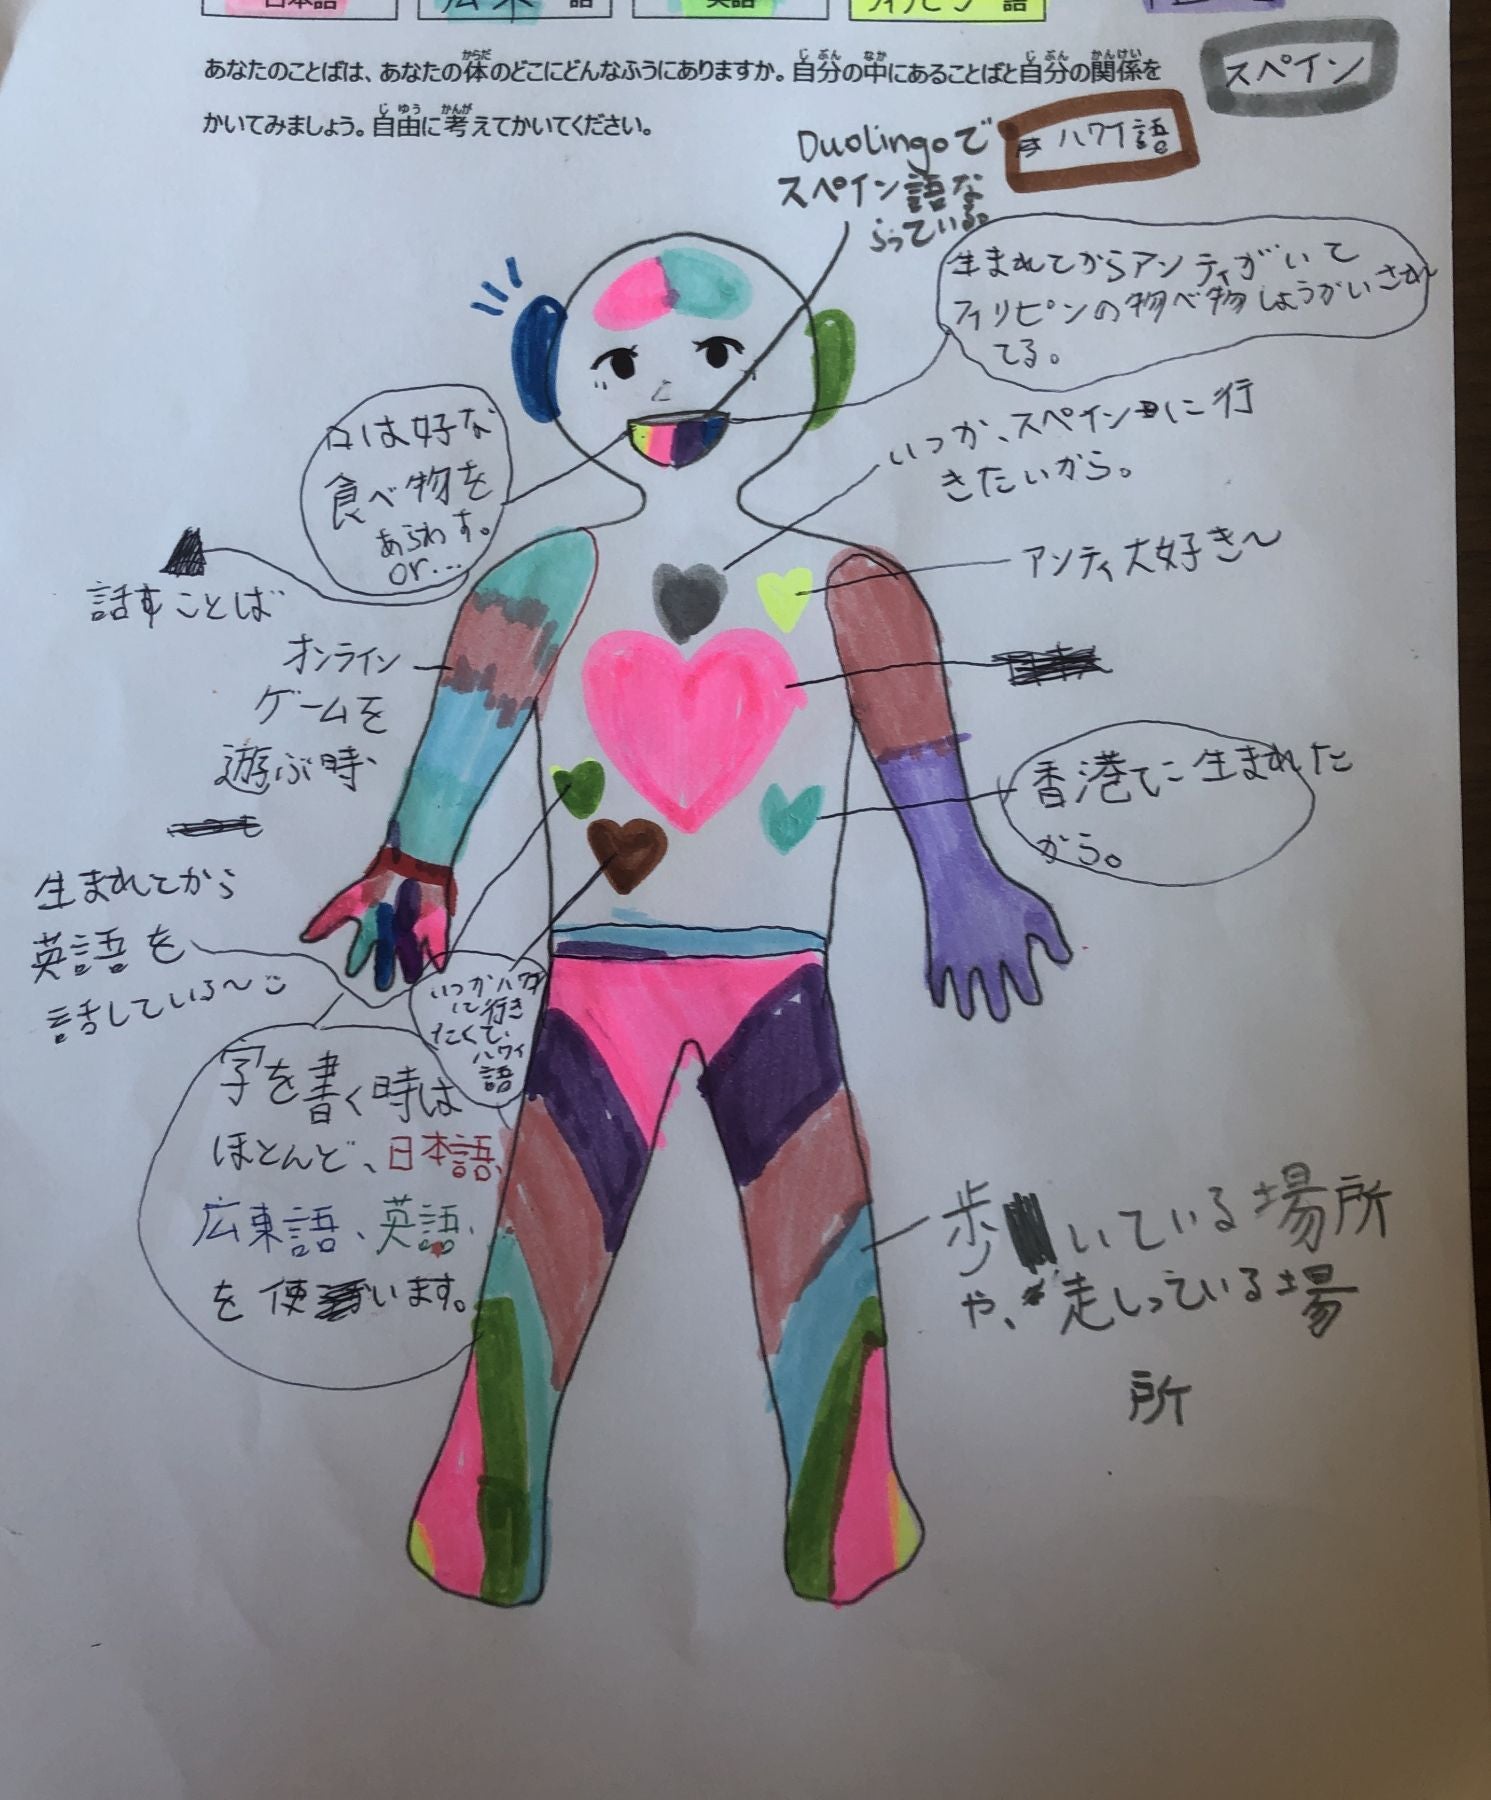 日本語
広東語
英語
フィリピン語
あなたのことばは、あなたの体のどこにどんなふうにありますか。自分の中にあることばと自分の関係を
かいてみましょう。自由に考えてかいてください。
スペイン
ハワイ語
Duolingoで
スペイン語な
らっている。
生まれてからアンティがいて
フィリピンの物べ物しょうかいされ
てる。
口は好な
食べ物を
あらわす。
or...
いつか、スペインに行
きたいから。
アンティ大好き〜
話すことば
オンライン
ゲームを
遊ぶ時
香港でこ生まれた
から。
生まれてから
英語を
話している〜
いつかハワイ
に行き
たくて、
ハワイ
語
字を書く時は
ほとんど、日本語、
広東語、英語、
を使います。
歩いている場所
や、走しっている場
所